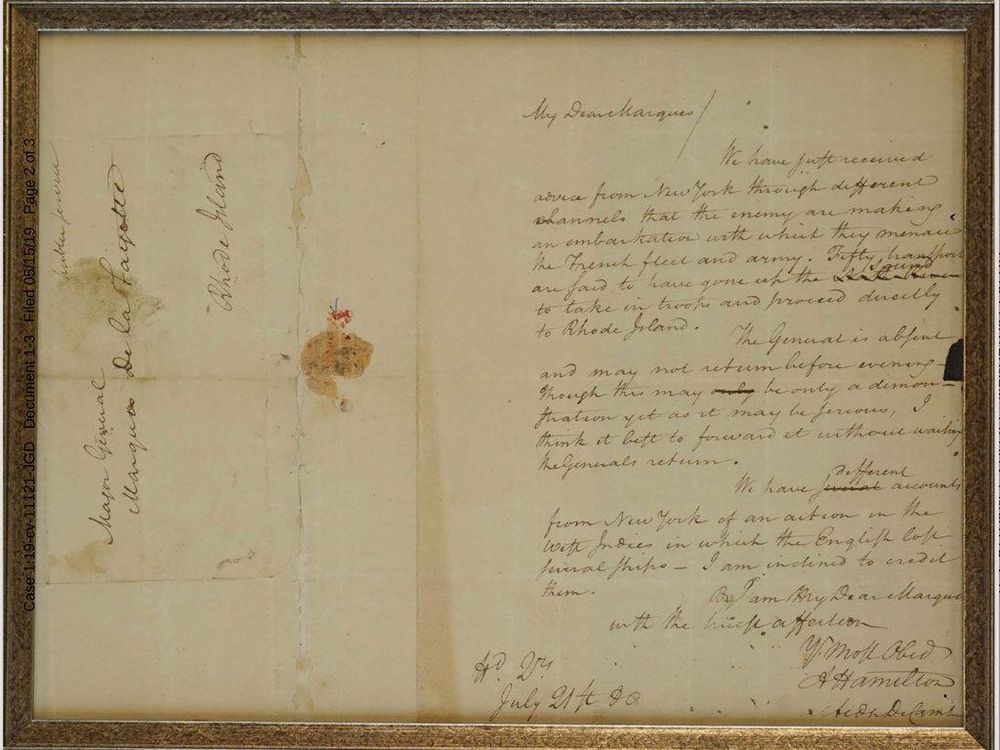 Case 1:19-cv-11121-JGD Document 1-3 Filed 05/15/19 Page 2 of 3
Major General
Marquis De la Fayette
Rhode Island
My Dear Marquis/
We have just received
advice from New York through different
channels that the enemy are making
an embarkation with which they menace
the French fleet and army. Fifty transports
are said to have gone up the Sound
to take in troops and proceed directly
to Rhode Island.
The General is absent
and may not return before evening –
Though this may only be only a demon-
stration yet as it may be serious, I
think it best to forward it without waiting
the Generals return.
We have several different accounts
from New York of an action in the
West Indies in which the English lost
several ships – I am inclined to credit
them.
I am My Dear Marquis
with the truest affection
Yr. Most Obed
A Hamilton
Aide De Camp
Hd. Qrs.
July 21st 80